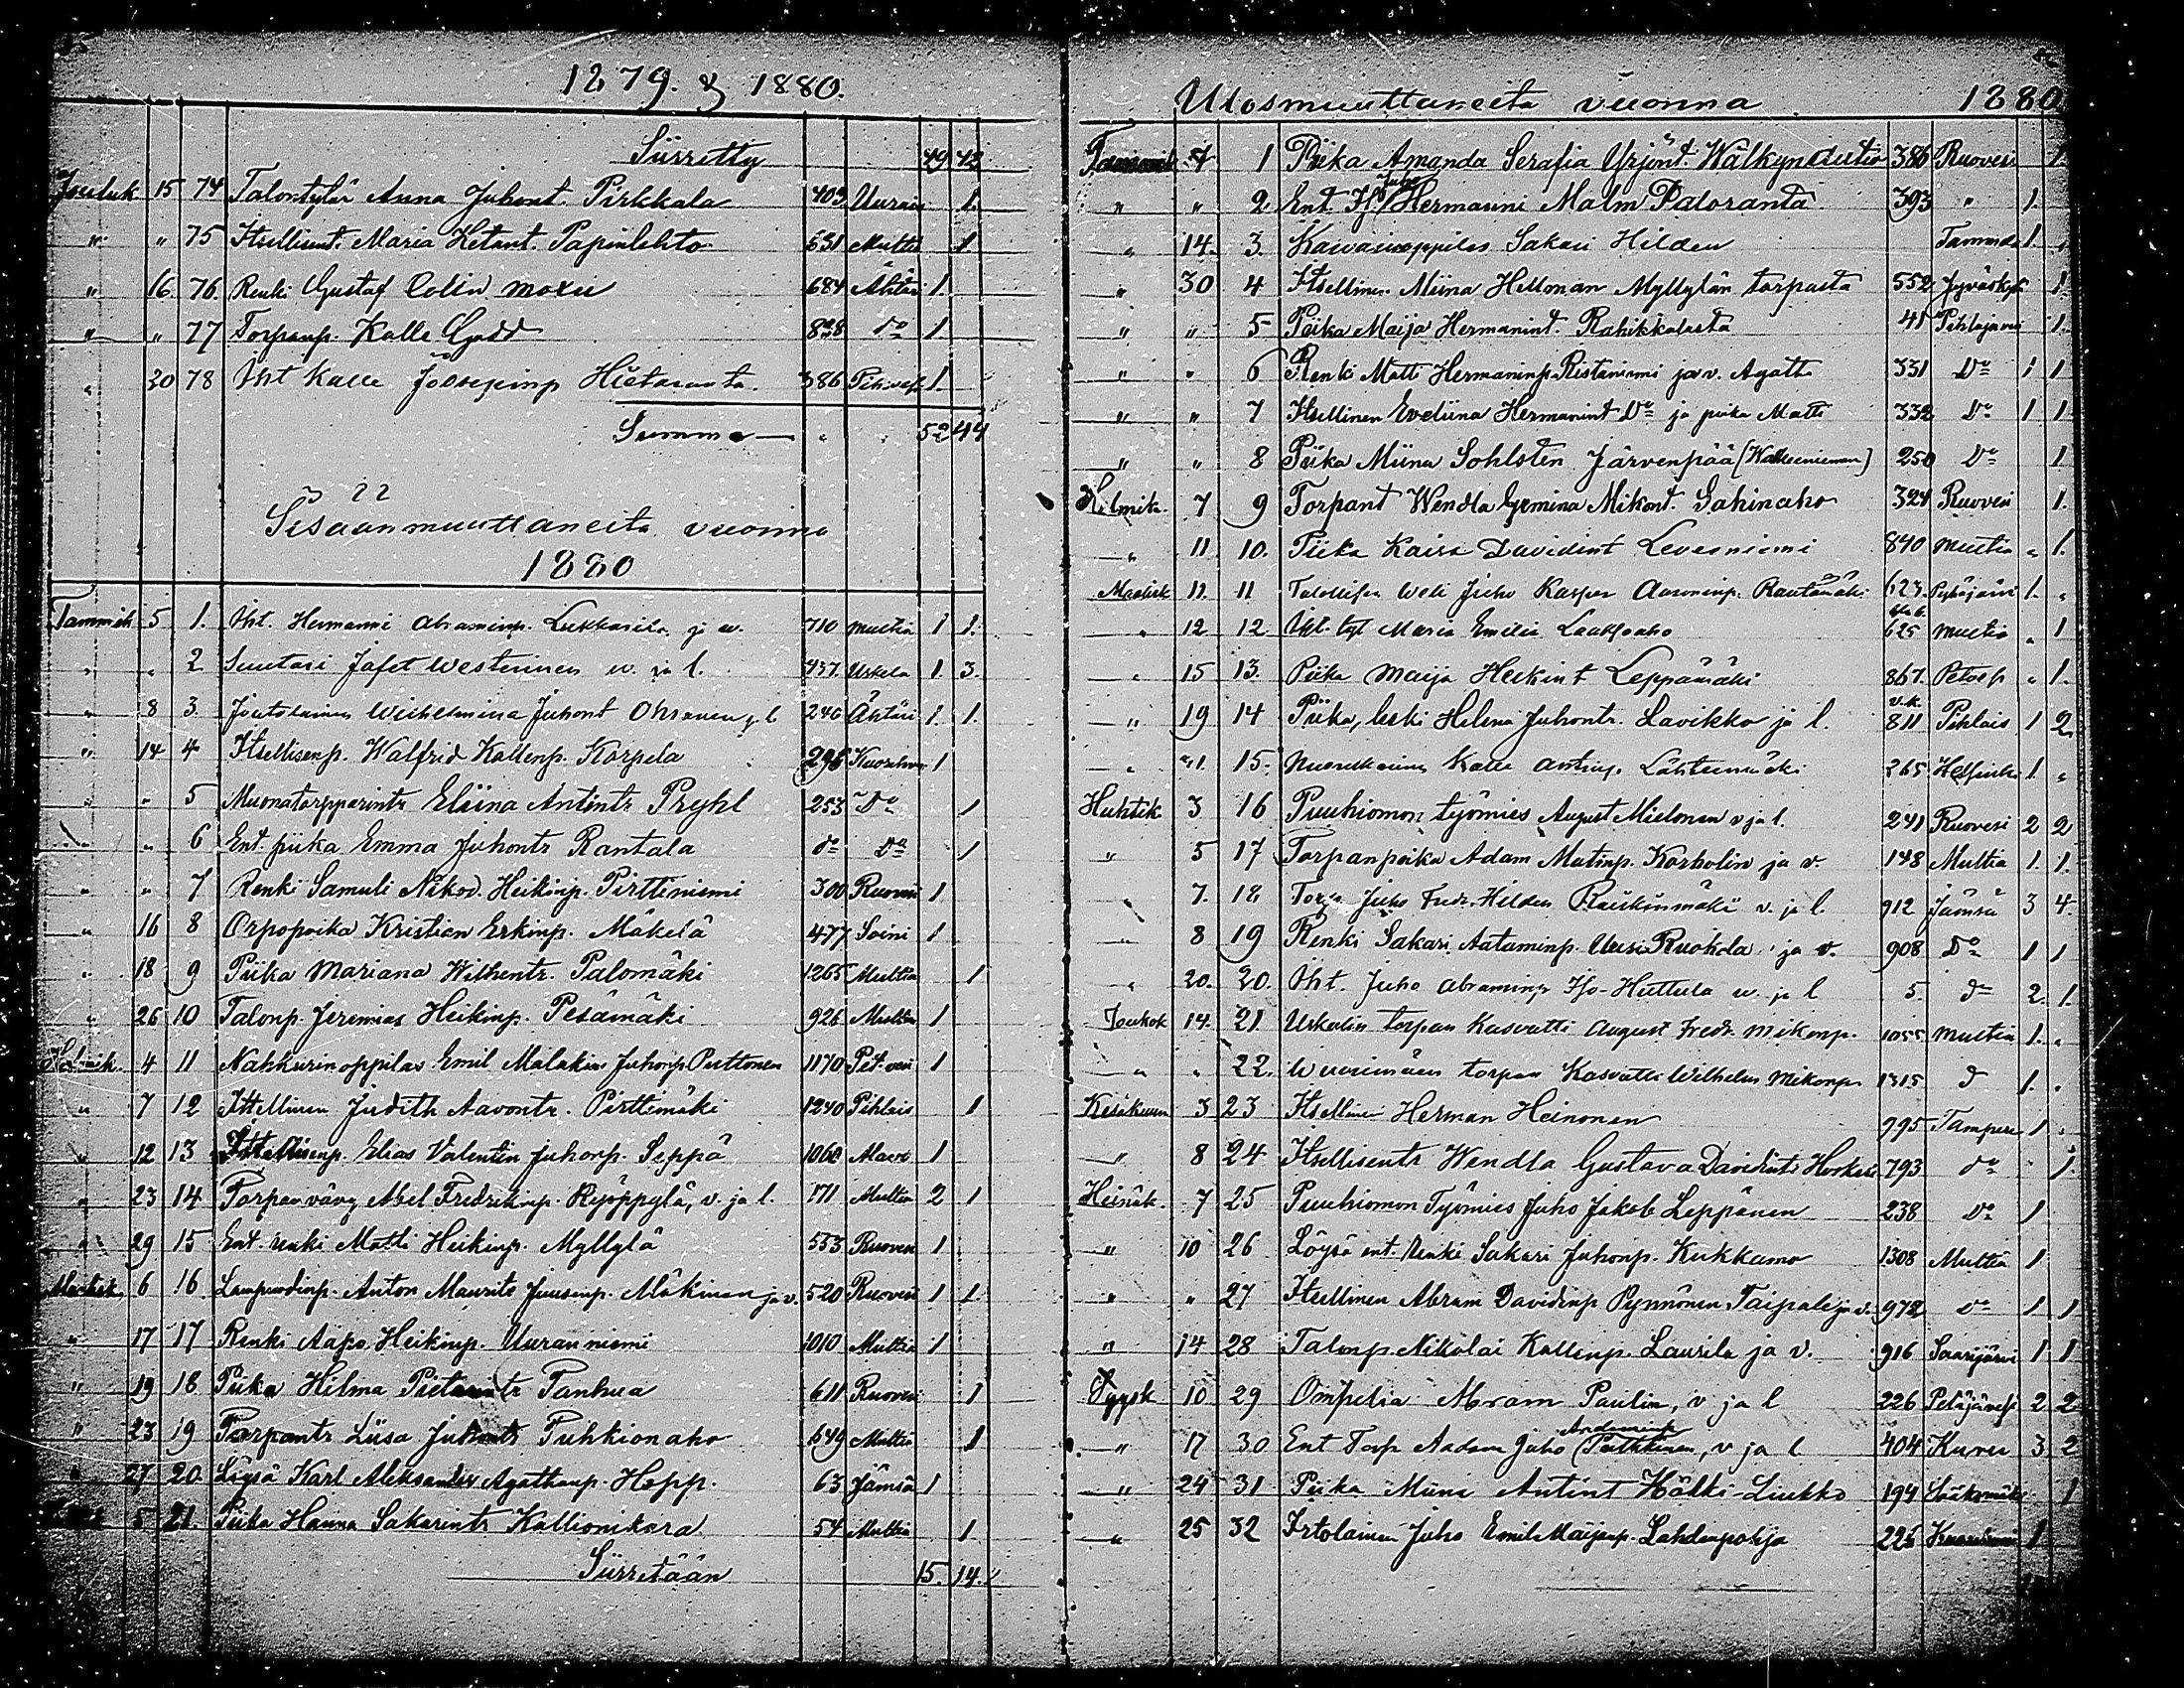 1879. & 1880.
Siirretty 49 42
Jouluk 15 74 Talontytär Anna Juhont. Pirkkala 403 Uurai 1.
" " 75 Itsellisent. Maria Ketant. Papinlehto 631 Multia 1.
" 16 76. Renki Gustaf Colin 684 Ähtäri 1.
" " 77 Torpanp. Kalle Gadd 828 do 1
" 30 78 Kalle Hietaranta 386 1.
Summa — " 52 44
Sisäänmuuttaneita vuonna
1880
Tammik 5 1. Iht. Hermanni Abraminp. Lukkarila ja w. 710 Multia 1 1.
" " 2 Suutari Jafet Westerinen w. ja l. 437. Uskela 1. 3.
" 8 3. Weihelmina Juhont 246 Ähtäri 1. 1.
" 14 4 Itsellisenp. Walfrid Kallenp. Korpela 296 1
" " 5 Muonatorpparintr Eliina Antintr Pryhl 253 Do 1
" " 6 Ent. piika Emma Juhontr Rantala do Do 1
" " 7 Renki Samuli Nikod. Heikinp. Pirttiniemi 300 Ruovesi 1
" 16 8 Orpopoika Kristian Erkinp. Mäkelä 477 Soini 1
" 18 9 Piika Mariana Wilhentr. Palomäki 1265 Multia 1
" 26 10 Talonp. Jeremias Heikinp. Pesämäki 926 Multia 1
Helmik. 4 11 Nahkurinoppilas Emil Malakias Juhonp. Puttonen 1170 Pet.vesi 1
" 7 12 Itsellinen Judith Aavontr. Pirttimäki 1240 Pihlais 1
" 12 13 Itsellisenp. Elias Valentin Juhonp. Seppä 1060 Alavo 1
" 23 14 Torpanvävy Abel Fredrikinp. Ryöppylä, v. ja l. 171 Multia 2 1
" 29 15 Ent. renki Matti Heikinp. Myllylä 553 Ruovesi 1
Maalisk 6 16. Anton Maurits Juusenp. Mäkinen ja v. 520 Ruovesi 1 1
" 17 17 Renki Aapo Heikinp. Uuranniemi 1010 Multia 1
" 19 18 Piika Hilma Pietarintr Tanhua 611 Ruovesi 1
" 23 19 Torpantr Liisa Juhontr Puhkionaho 649 Multia 1
" 27 20. Löysä Karl Aleksander Agathanp. Hopp. 63 Jämsä 1
5 21. Piika Hanna Sakarintr Kallionikara 54 Multia 1
Siirretään 15. 14.
Ulosmuuttaneita vuonna 1880
Tammik 4 1 Piika Amanda Serafia Yrjönt. 386 Ruovesi 1.
" " 2 Ent. Juho Hermanni Malm Paloranta 393 " 1.
" 14. 3. Sakari Hilden 1. "
" 30 4 Itsellinen Miina Hellman Myllylän torpasta 552 Jyväskyl 1.
" " 5 Piika Maija Hermanint. Rahikkalasta 41 Pihlajavesi 1.
" " 6 Renki Matti Hermaninp. Ristaniemi ja v. Agatta 331 Do 1 1
" " 7 Itsellinen Eveliina Hermanint Do ja poika Matti 332 Do 1 1
" " 8 Piika Miina Sohlsten Järvenpää 250 Do 1
Helmik. 7 9 Torpant Wendla Mikont. Sahinaho 324 Ruovesi 1.
" 11 10. Piika Kaisa Davidint Levesniemi 840 Multia " 1.
Maalisk 11. 11 Juho Kasper Aaroninp. Rautamäki 623. Pyhäjärvi 1. "
" 12 12. Maria Emilia 625 Multia " 1
" 15 13. Piika Maija Heikint Leppämäki 867. " 1.
" 19 14 Piika, leski Helena Juhontr. Lavikko ja l. v.k. 811 Pihlais 1 2
" 15. Kalle Antinp. Lähteenmäki 265 Helsinki 1. "
Huhtik 3 16 Puuhiomon työmies August Mielonen v ja l. 241 Ruovesi 2 2
" 5 17 Torpanpoika Adam Matinp. Korholin ja v. 148 Multia 1. 1.
" 7. 18. Torp. Juho Fredr. Hilden v. ja l. 912 Jämsä 3 4.
" 8 19 Renki Sakari Aataminp. Uusi Ruokola ja v. 908 Do 1 1
" 20. 20. Iht. Juho Abraminp Iso-Huttula w. ja l 5. do 2. 1.
Toukok 14. 21. Uskalin torpan kasvatti August Fredr. Mikonp. 1055 Multia 1. "
" " 22. torpan kasvatti Wilhelm Mikonp 1315 d 1. "
Kesäkuun 3 23 Itsellinen Herman Heinonen 995 Tampere 1 "
" 8 24 Itsellisentr Wendla Gustava Davidintr 793 do " 1.
Heinäk. 7 25 Puuhiomon Työmies Juho Jakob Leppänen 238 Do 1
" 10 26 Löysä ent. renki Sakari Juhonp. Kukkamo 1308 Multia 1
" " 27 Itsellinen Abram Davidinp Pynnönen, Taipale ja v. 972 Do 1 1
" 14 28 Talonp. Nikolai Kallenp. Laurila ja v. 916 Saarijärvi 1 1
Syysk 10 29 Ompelia Abram Paulin, v ja l 226 Petäjävesi 2 2
" 17 30 Ent Torp Aadam Juho Andersink (Pathkinen, v ja l 404 Kuru 3 2
" 24 31 Piika Miina Antint Hälli-Liukko 194 Sääksmäki 1
" 25 32 Irtolainen Juho Emil Maijanp. Lahdenpohja 225 1